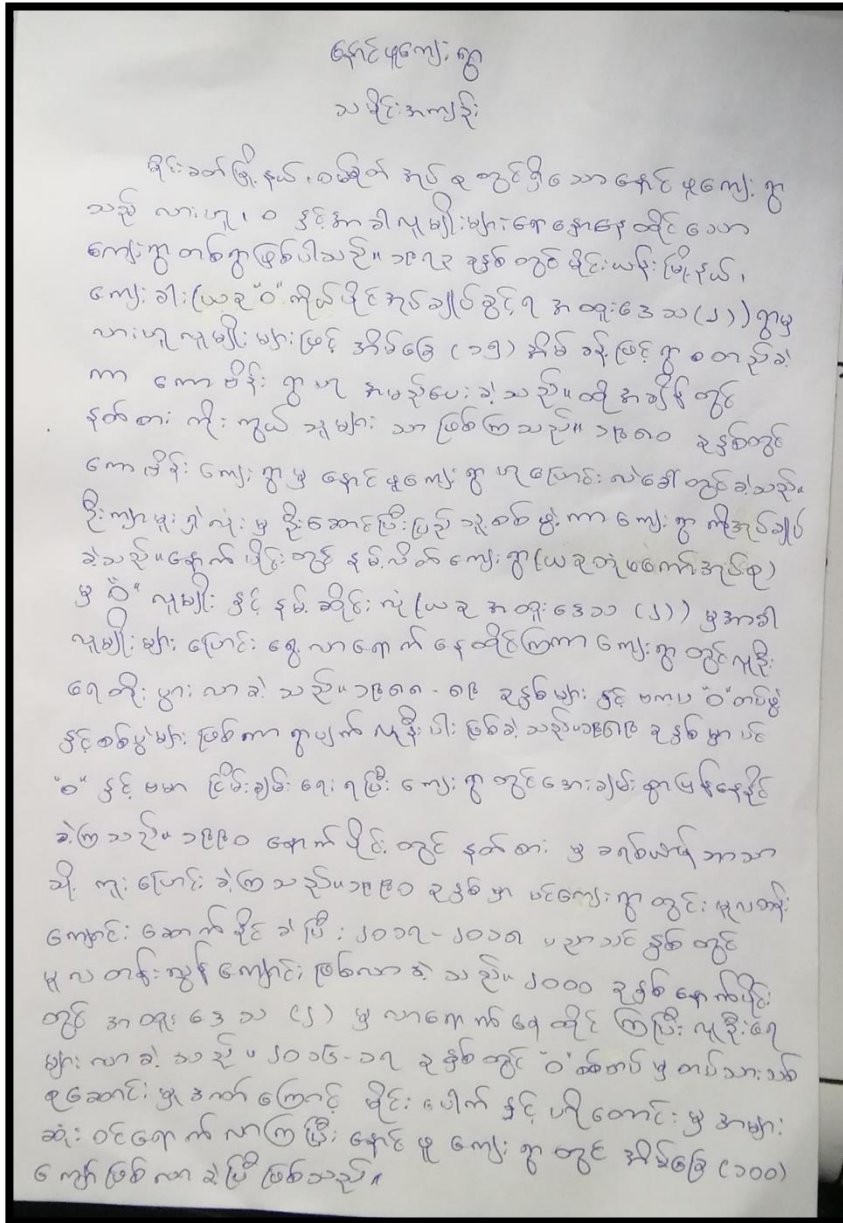 နောင်ဖူကျေးရွာ
သမိုင်းအကျဉ်း
မိုင်းခတ်မြို့နယ်၊ ဝမ်စိုတ် အုပ်စုတွင်ရှိသော နောင်ဖူကျေးရွာ
သည် လားဟူ၊ ဝ နှင့်အာခါလူမျိုးများ ရောနှောနေထိုင်သော
ကျေးရွာတစ်ရွာဖြစ်ပါသည်။ ၁၉၇၃ ခုနှစ်တွင် မိုင်းယန်းမြို့နယ်၊
ကျေးခါး (ယခု "ဝ" ကိုယ်ပိုင်အုပ်ချုပ်ခွင့်ရ အထူးဒေသ (၂)) ရွာမှ
လားဟူလူမျိုးများဖြင့် အိမ်ခြေ (၁၅) အိမ်ခန့်ဖြင့် ရွာစတည်ခဲ့
ကာ ကောဗိန်းရွာဟု အမည်ပေးခဲ့သည်။ ထိုအချိန်တွင်
နတ်စား ကိုးကွယ်သူများ သာဖြစ်ကြသည်။ ၁၉၈၀ ခုနှစ်တွင်
ကောဗိန်းကျေးရွာမှ နောင်ဖူကျေးရွာဟုပြောင်းလဲခေါ်တွင်ခဲ့သည်။
ဦးကျာမူး ရှဲလုံးမှ ဦးဆောင်ပြီးပြည်သူ့စစ်ဖွဲ့ကာ ကျေးရွာကိုအုပ်ချုပ်
ခဲ့သည်။ နောက်ပိုင်းတွင် နမ့်လိတ်ကျေးရွာ (ယခု အုပ်စု)
မှ "ဝ" လူမျိုး နှင့် နမ့်ဆိုင်းလုံ (ယခု အထူးဒေသ (၂)) မှအာခါ
လူမျိုးများ ပြောင်းရွှေ့လာရောက်နေထိုင်ကြကာ ကျေးရွာတွင်လူဦး
ရေတိုးပွားလာခဲ့သည်။ ၁၉၈၈-၈၉ ခုနှစ်များ နှင့် ဗကပ "ဝ" တပ်ဖွဲ့
နှင့်စစ်ပွဲများ ဖြစ်ကာ ရွာပျက်လူနည်းပါး ဖြစ်ခဲ့သည်။ ၁၉၈၉ ခုနှစ်မှာပင်
"ဝ" နှင့် ဗမာ ငြိမ်းချမ်းရေးရပြီး ကျေးရွာတွင်အေးချမ်းစွာပြန်နေနိုင်
ခဲ့ကြသည်။ ၁၉၉၀ နောက်ပိုင်းတွင် နတ်စားမှ ခရစ်ယာန်ဘာသာ
သို့ ကူးပြောင်းခဲ့ကြသည်။ ၁၉၉၀ ခုနှစ်မှာ ပင်ကျေးရွာတွင်း မူလတန်း
ကျောင်းဆောက်နိုင်ခဲ့ပြီး ၂၀၁၇-၂၀၁၈ ပညာသင်နှစ်တွင်
မူလတန်းလွန်ကျောင်းဖြစ်လာခဲ့သည်။ ၂၀၀၀ ခုနှစ်နောက်ပိုင်း
တွင် အထူးဒေသ (၂) မှ လာရောက်နေထိုင်ကြပြီး လူဦးရေ
များလာခဲ့သည်။ ၂၀၁၆-၁၇ ခုနှစ်တွင် "ဝ" စစ်တပ်မှ တပ်သားသစ်
စုဆောင်းမှုဒဏ်ကြောင့် မိုင်းပေါက် နှင့် ဟိုတောင်းမှ အများ
ဆုံး ဝင်ရောက်လာကြပြီး နောင်ဖူကျေးရွာတွင် အိမ်ခြေ (၁၀၀)
ကျော်ဖြစ်လာခဲ့ပြီ ဖြစ်သည်။